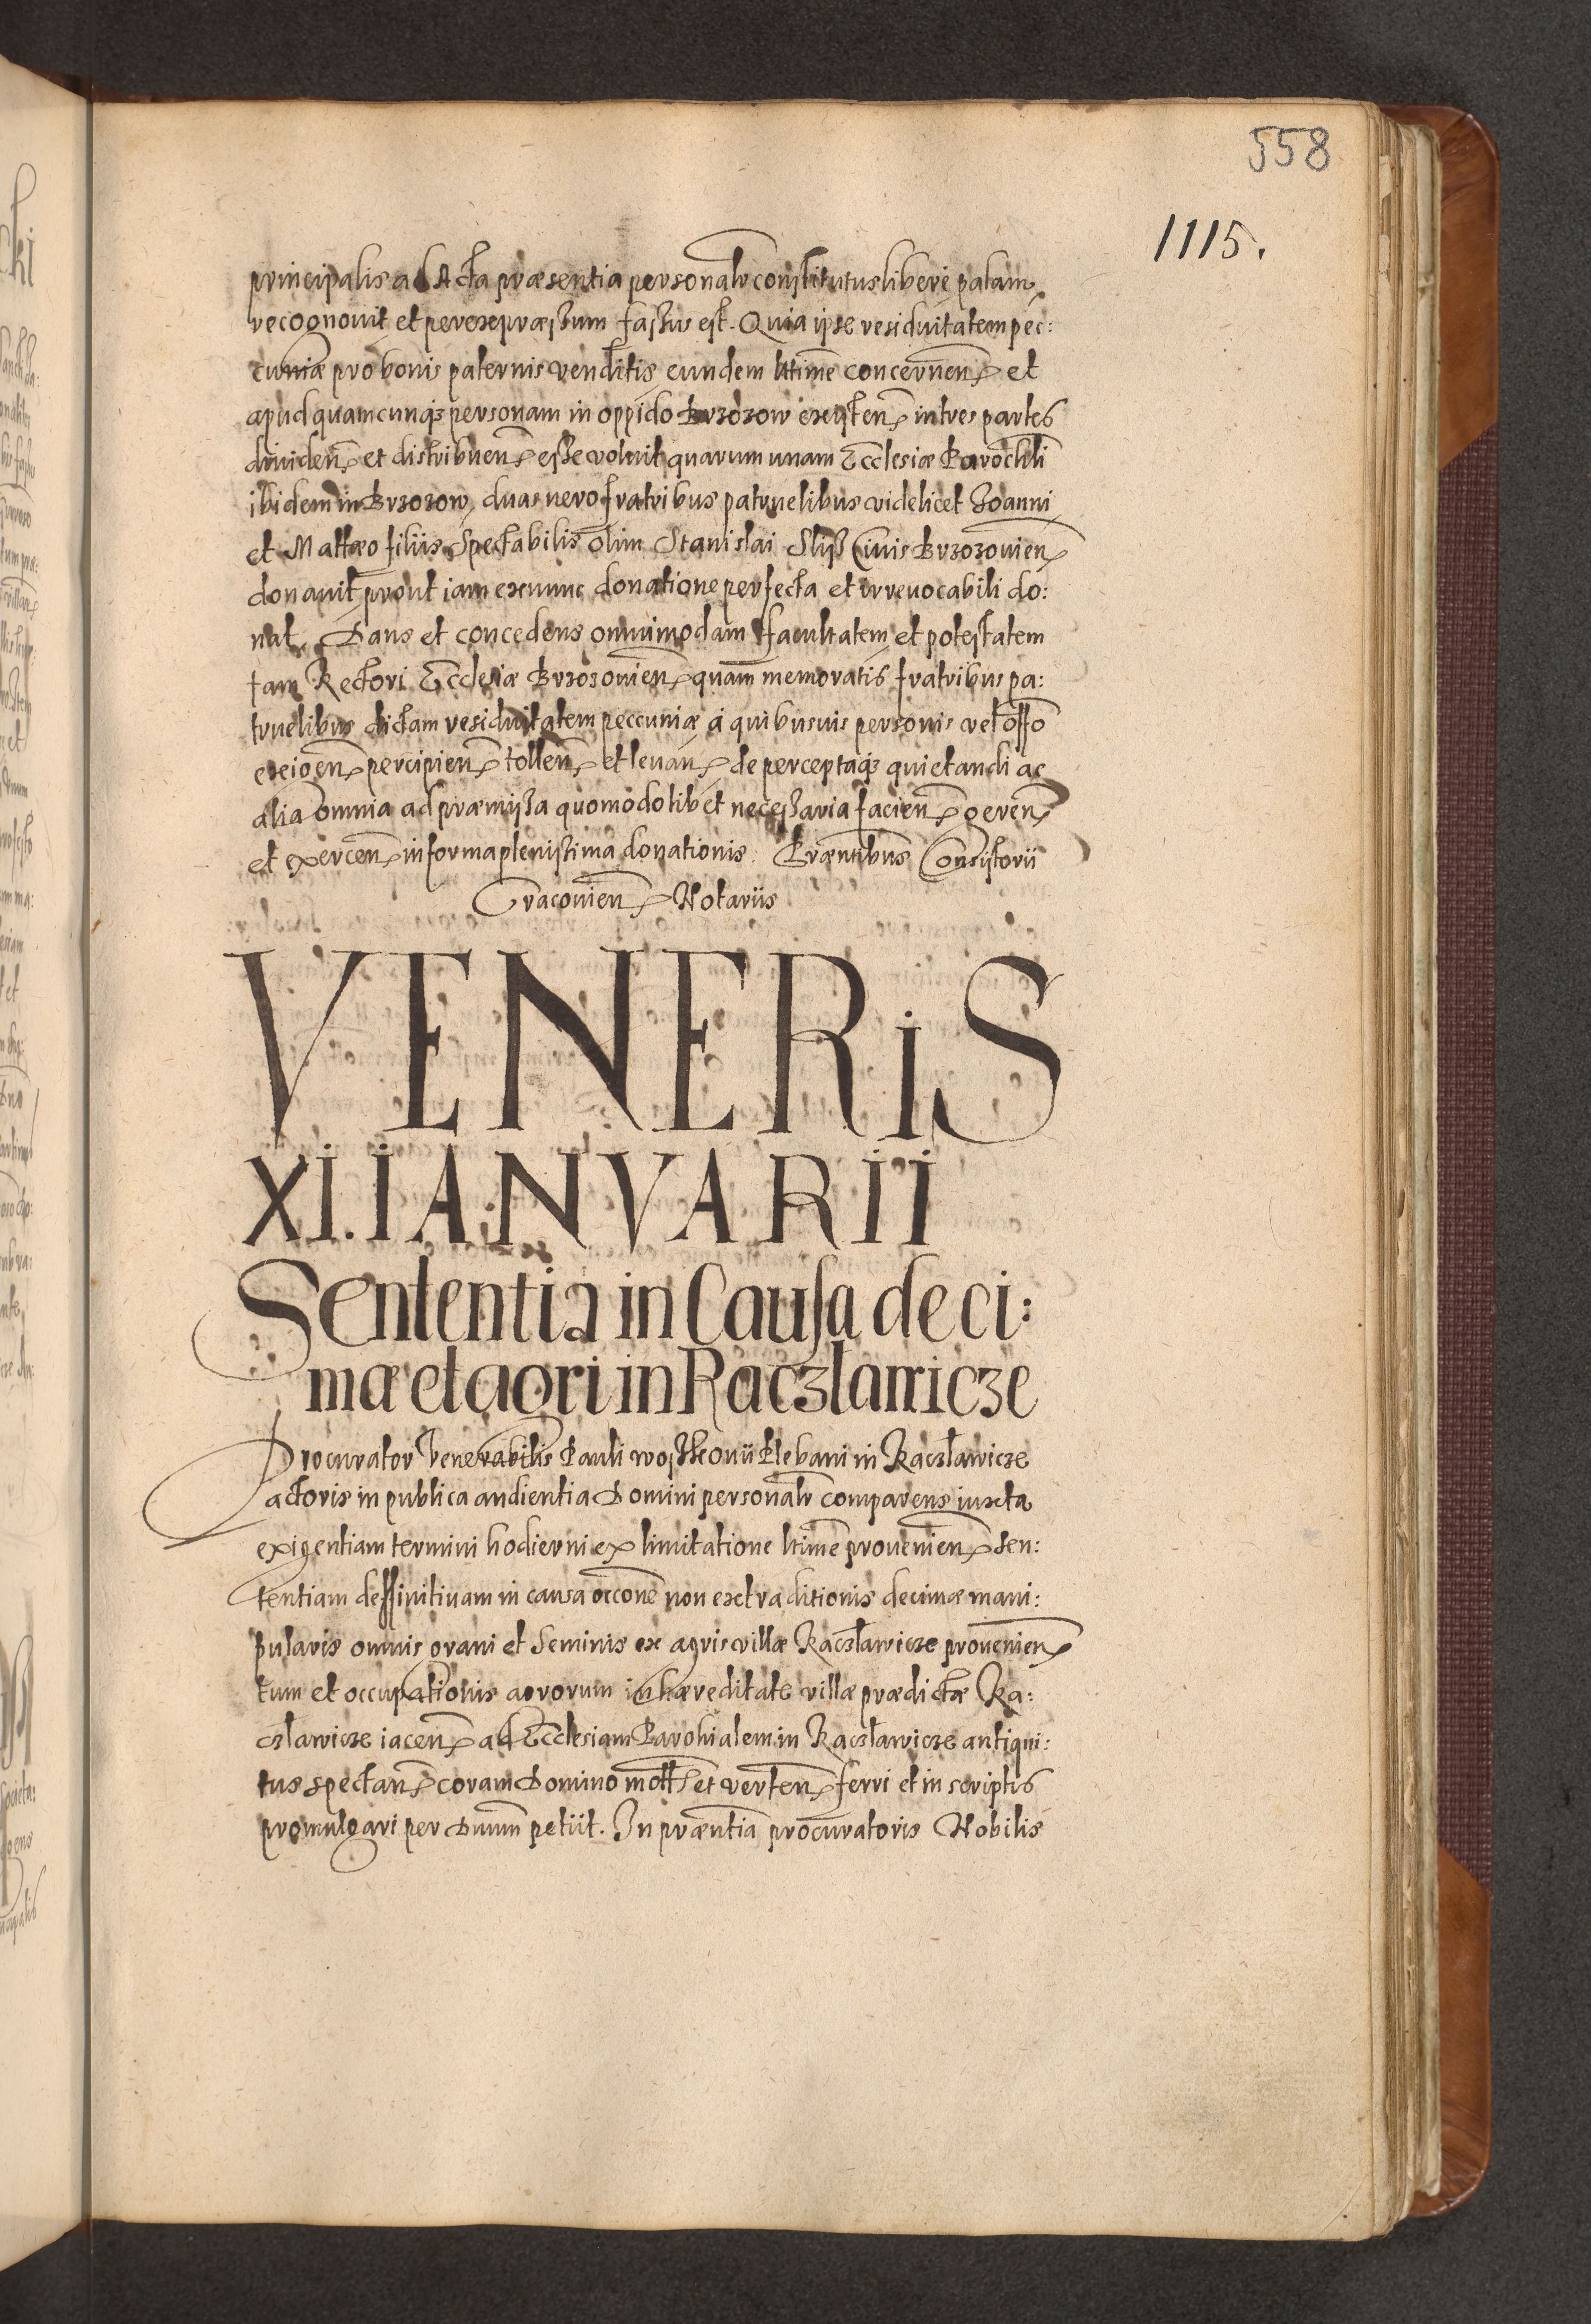 558
1115.
principalis ad Acta præsentia personalr constitutus liberè palam
recognovit et per expræssum fassus est. Quia ipse residuitatem pec:
cuniæ pro bonis paternis venditis eundem lttime concernen et
apud quamcunqz personam in oppido Brzozow existen in tres partes
diuiden et distribuen esse voluit quarum unam Ecclesiæ Parochli
ibidem in Brzozow, duas uero fratribus patruelibus videlicet Joanni
et Mattæo filiis Spectabilis olim Stanislai Sliß Ciuis Brzozouien
donauit prout iam ex nunc donatione perfecta et irreuocabili do:
nat. Dans et concedens omnimodam facultatem et potestatem
tam Rectori Ecclesiæ Brzozouien quam memoratis fratribus pa:
truelibus dictam residuitatem peccuniæ à quibusuis personis vel offo
exigen percipien tollen et leuan de perceptaqz quietandi ac
alia omnia ad præmissa quomodolibet necessaria facien geren
et exercen in forma plenissima donationis. Præntibus Consistorii
Cracouien Notariis
VENERiS
XI. IANVARII
Sententia in Causa deci:
mæ et agri in Raczlawicze
Procurator Venerabilis Pauli Plebani in Raczlawicze
actoris in publica audientia Domini personalr comparens iuxta
exigentiam termini hodierni ex limitatione lttime prouenien sen:
tentiam deffinitiuam in causa occone non extraditionis decimæ mani:
pularis omnis grani et seminis ex agris villæ Raczlawicze prouenien
tum et occupationis agrorum in hæreditate villæ prædictæ Ra:
czlawicze iacen ad Ecclesiam Parohialem in Raczlawicze antiqui:
tus spectan coram Domino mott et verten ferri et in scriptis
promulgari per Dnum petiit. In præntia procuratoris Nobilis